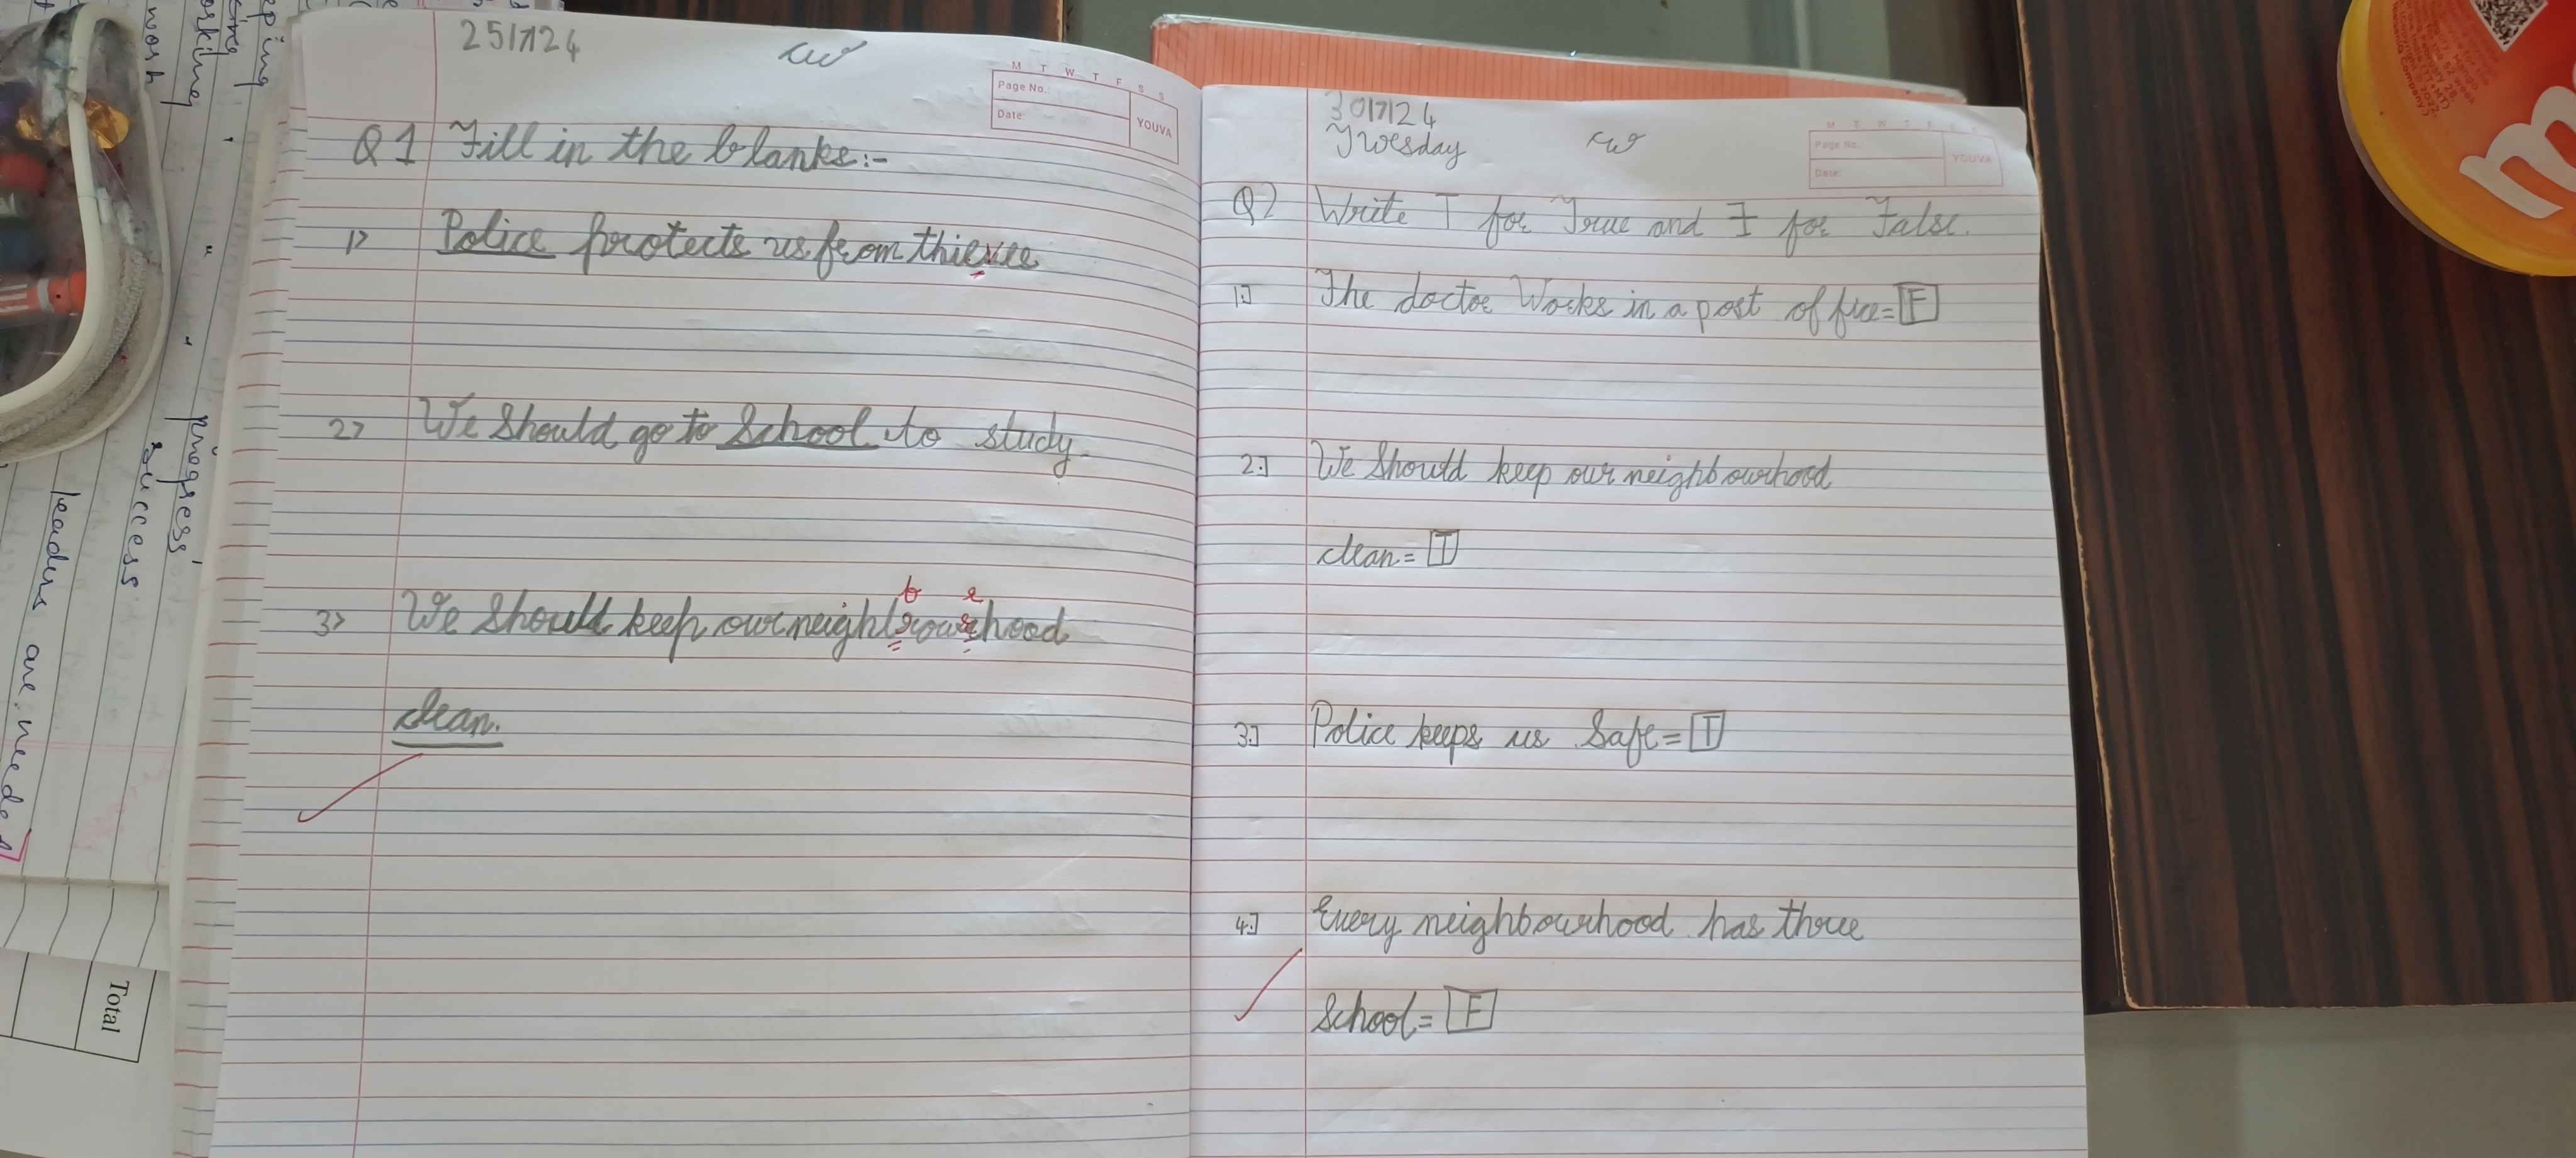 25/7/24
cw
M T W T F S S
Page No.:
Date:
YOUVA
Q1 Fill in the blanks:-
1> Police protects us from thieves
2> We should go to School to study.
3> We Should keep our neighbourhood
b r
clean.
30/7/24
Tuesday
cw
M T W T F S S
Page No.:
Date:
YOUVA
Q2 Write T for True and F for False.
1.] The doctor Works in a post office= F
2.] We Should keep our neighbourhood
clean.= T
3.] Police keeps us Safe= T
4.] Every neighbourhood has three
School= F
progress'
success
leaders are needed
Total